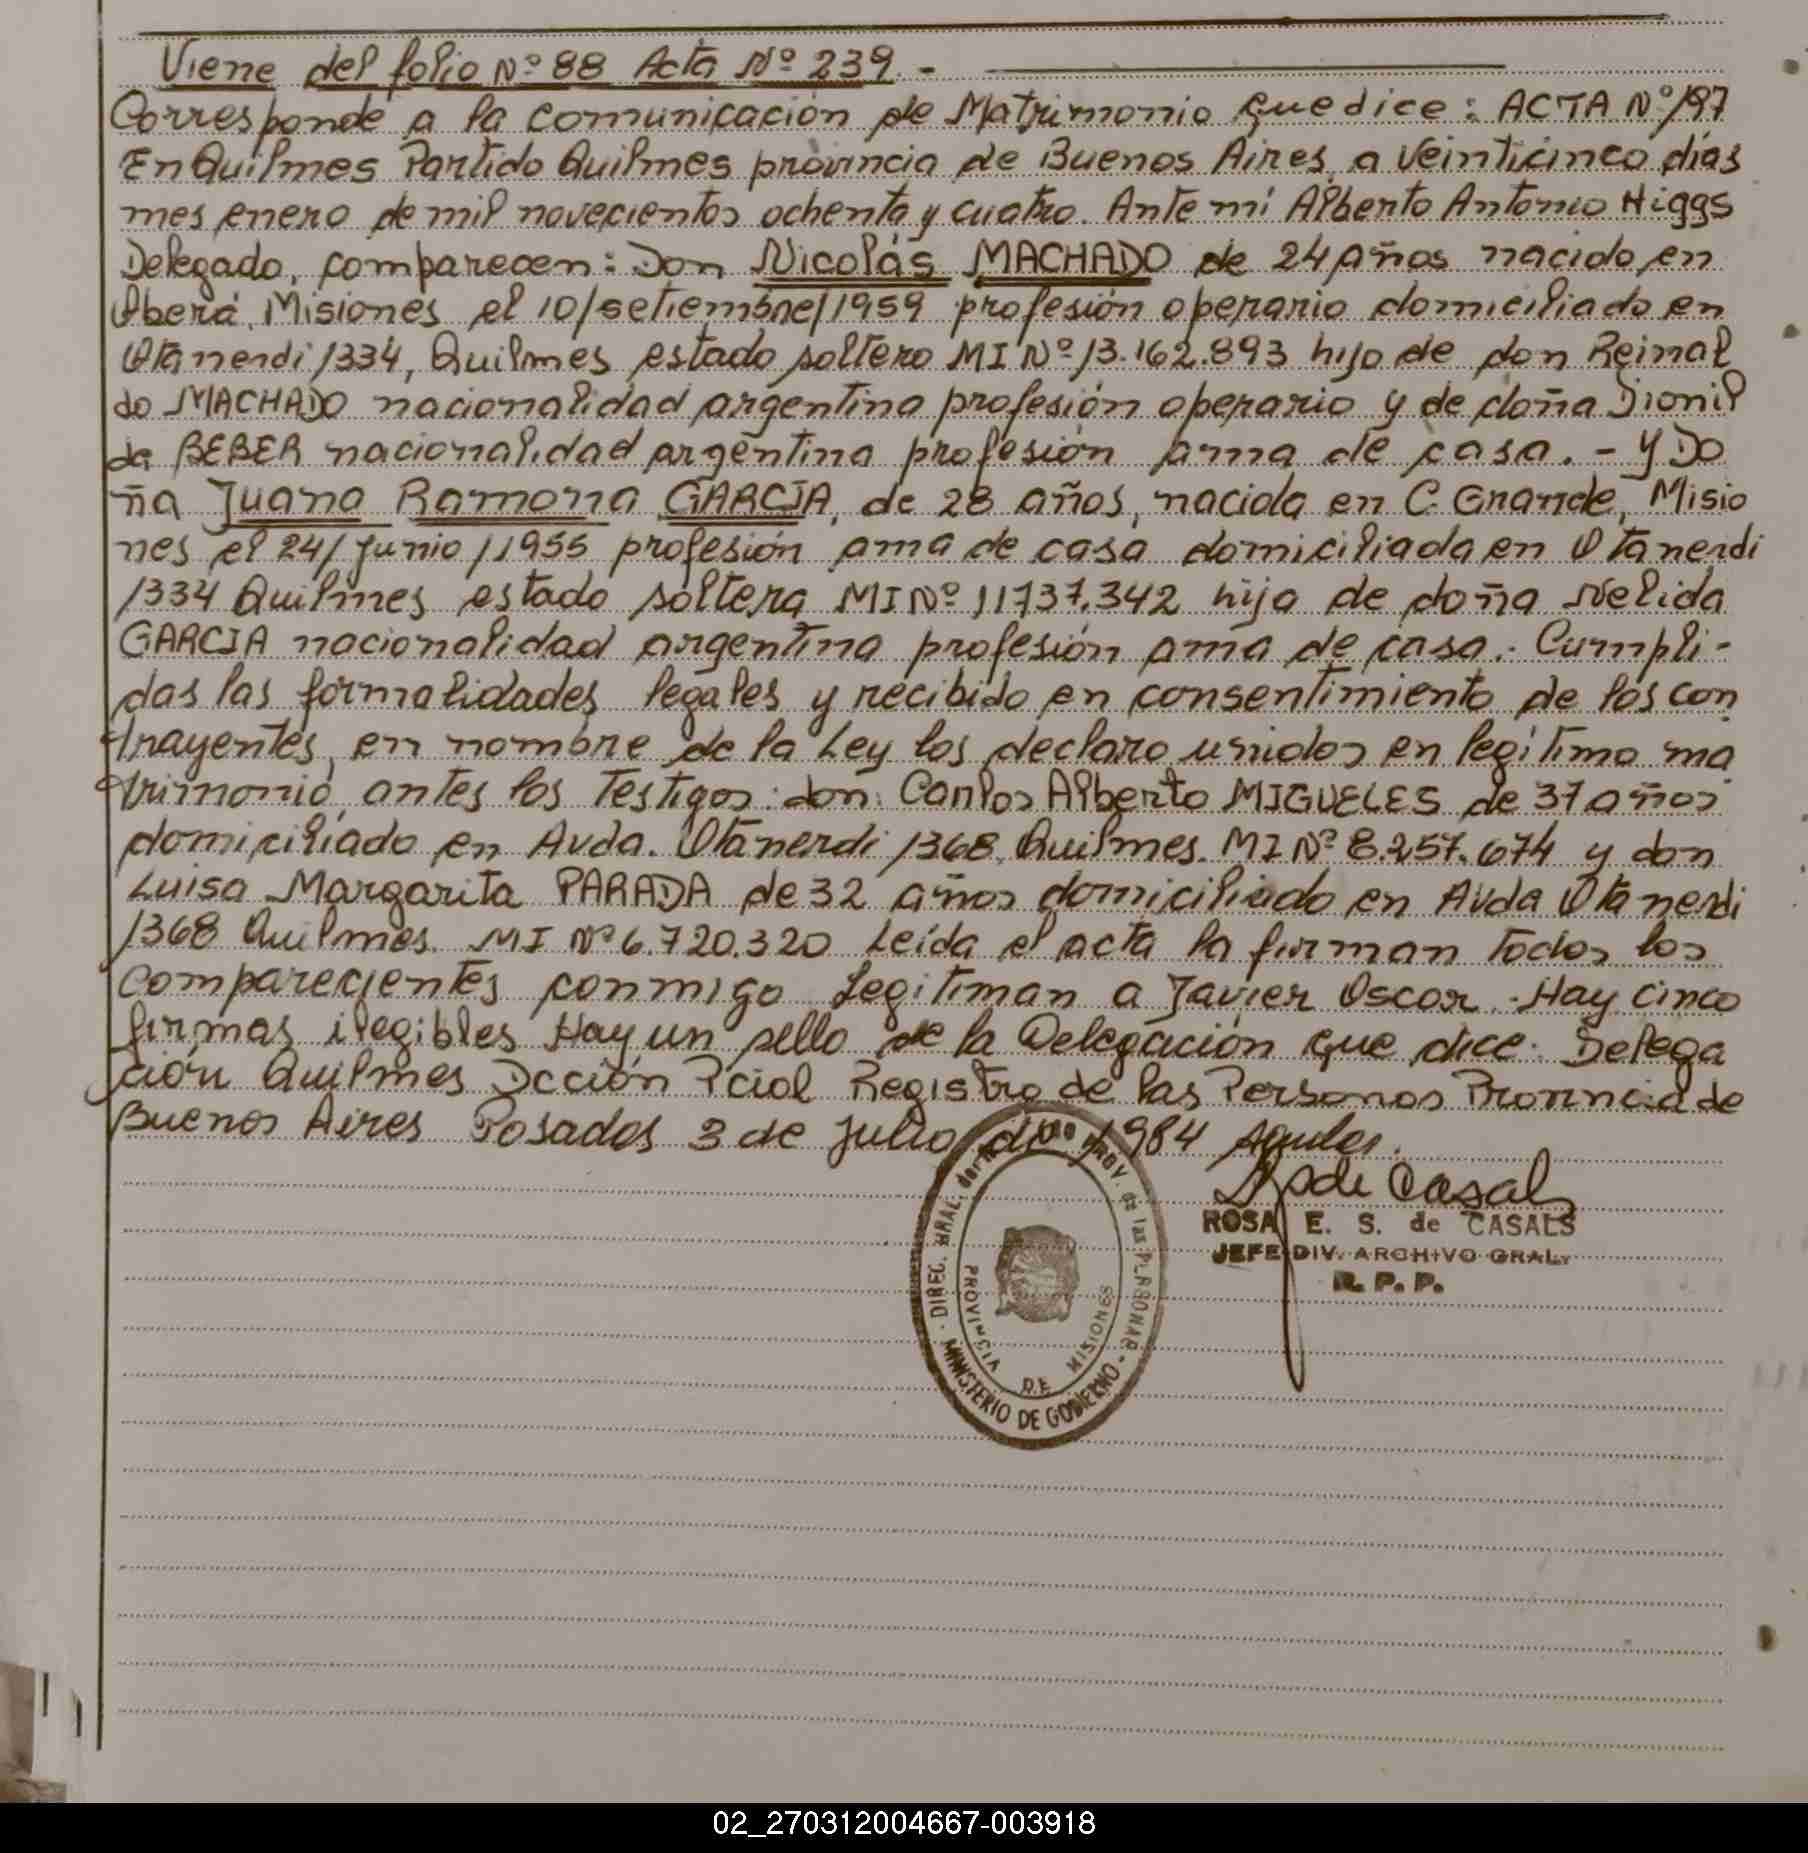 Viene del folio Nº 88 Acta Nº 239.-
Corresponde a la comunicación de Matrimonio que dice: ACTA Nº 197
En Quilmes Partido Quilmes provincia de Buenos Aires, a veinticinco días
mes enero de mil novecientos ochenta y cuatro. Ante mí Alberto Antonio Higgs
Delegado, comparecen: Don Nicolás MACHADO de 24 años nacido en
Oberá, Misiones el 10/setiembre/1959 profesión operario domiciliado en
Otanerdi 1334, Quilmes estado soltero MI Nº 13.162.893 hijo de don Reinal
do MACHADO nacionalidad argentina profesión operario y de doña Dionil
da BEBER nacionalidad argentina profesión ama de casa. - Y Do
ña Juana Ramona GARCIA, de 28 años, nacida en C. Grande, Misio
nes el 24/junio/1955 profesión ama de casa domiciliada en Otanerdi
1334 Quilmes estado soltera MI Nº 11737.342 hija de doña Nelida
GARCIA nacionalidad argentina profesión ama de casa.- Cumpli-
das las formalidades legales y recibido en consentimiento de los con
trayentes, en nombre de la Ley los declaro unidos en legítimo ma
trimonio, antes los Testigos: don: Carlos Alberto MIGUELES de 37 años
domiciliado en Avda. Otanerdi 1368 Quilmes. MI Nº 8.257.674 y don
Luisa Margarita PARADA de 32 años domiciliado en Avda Otanerdi
1368 Quilmes. MI Nº 6.720.320 Leída el acta la firman todos los
comparecientes conmigo Legitiman a Javier Oscar.- Hay cinco
firmas ilegibles Hay un sello de la Delegación que dice: Delega
ción Quilmes Dcción Pcial Registro de las Personas Provincia de
Buenos Aires Posadas 3 de Julio de 1984 Aguilar.
de Casals
ROSA E. S. de CASALS
JEFE DIV. ARCHIVO GRAL.
R. P. P.
DIREC. GRAL. del PROV. de las PERSONAS
MINISTERIO DE GOBIERNO
PROVINCIA DE MISIONES
02_270312004667-003918